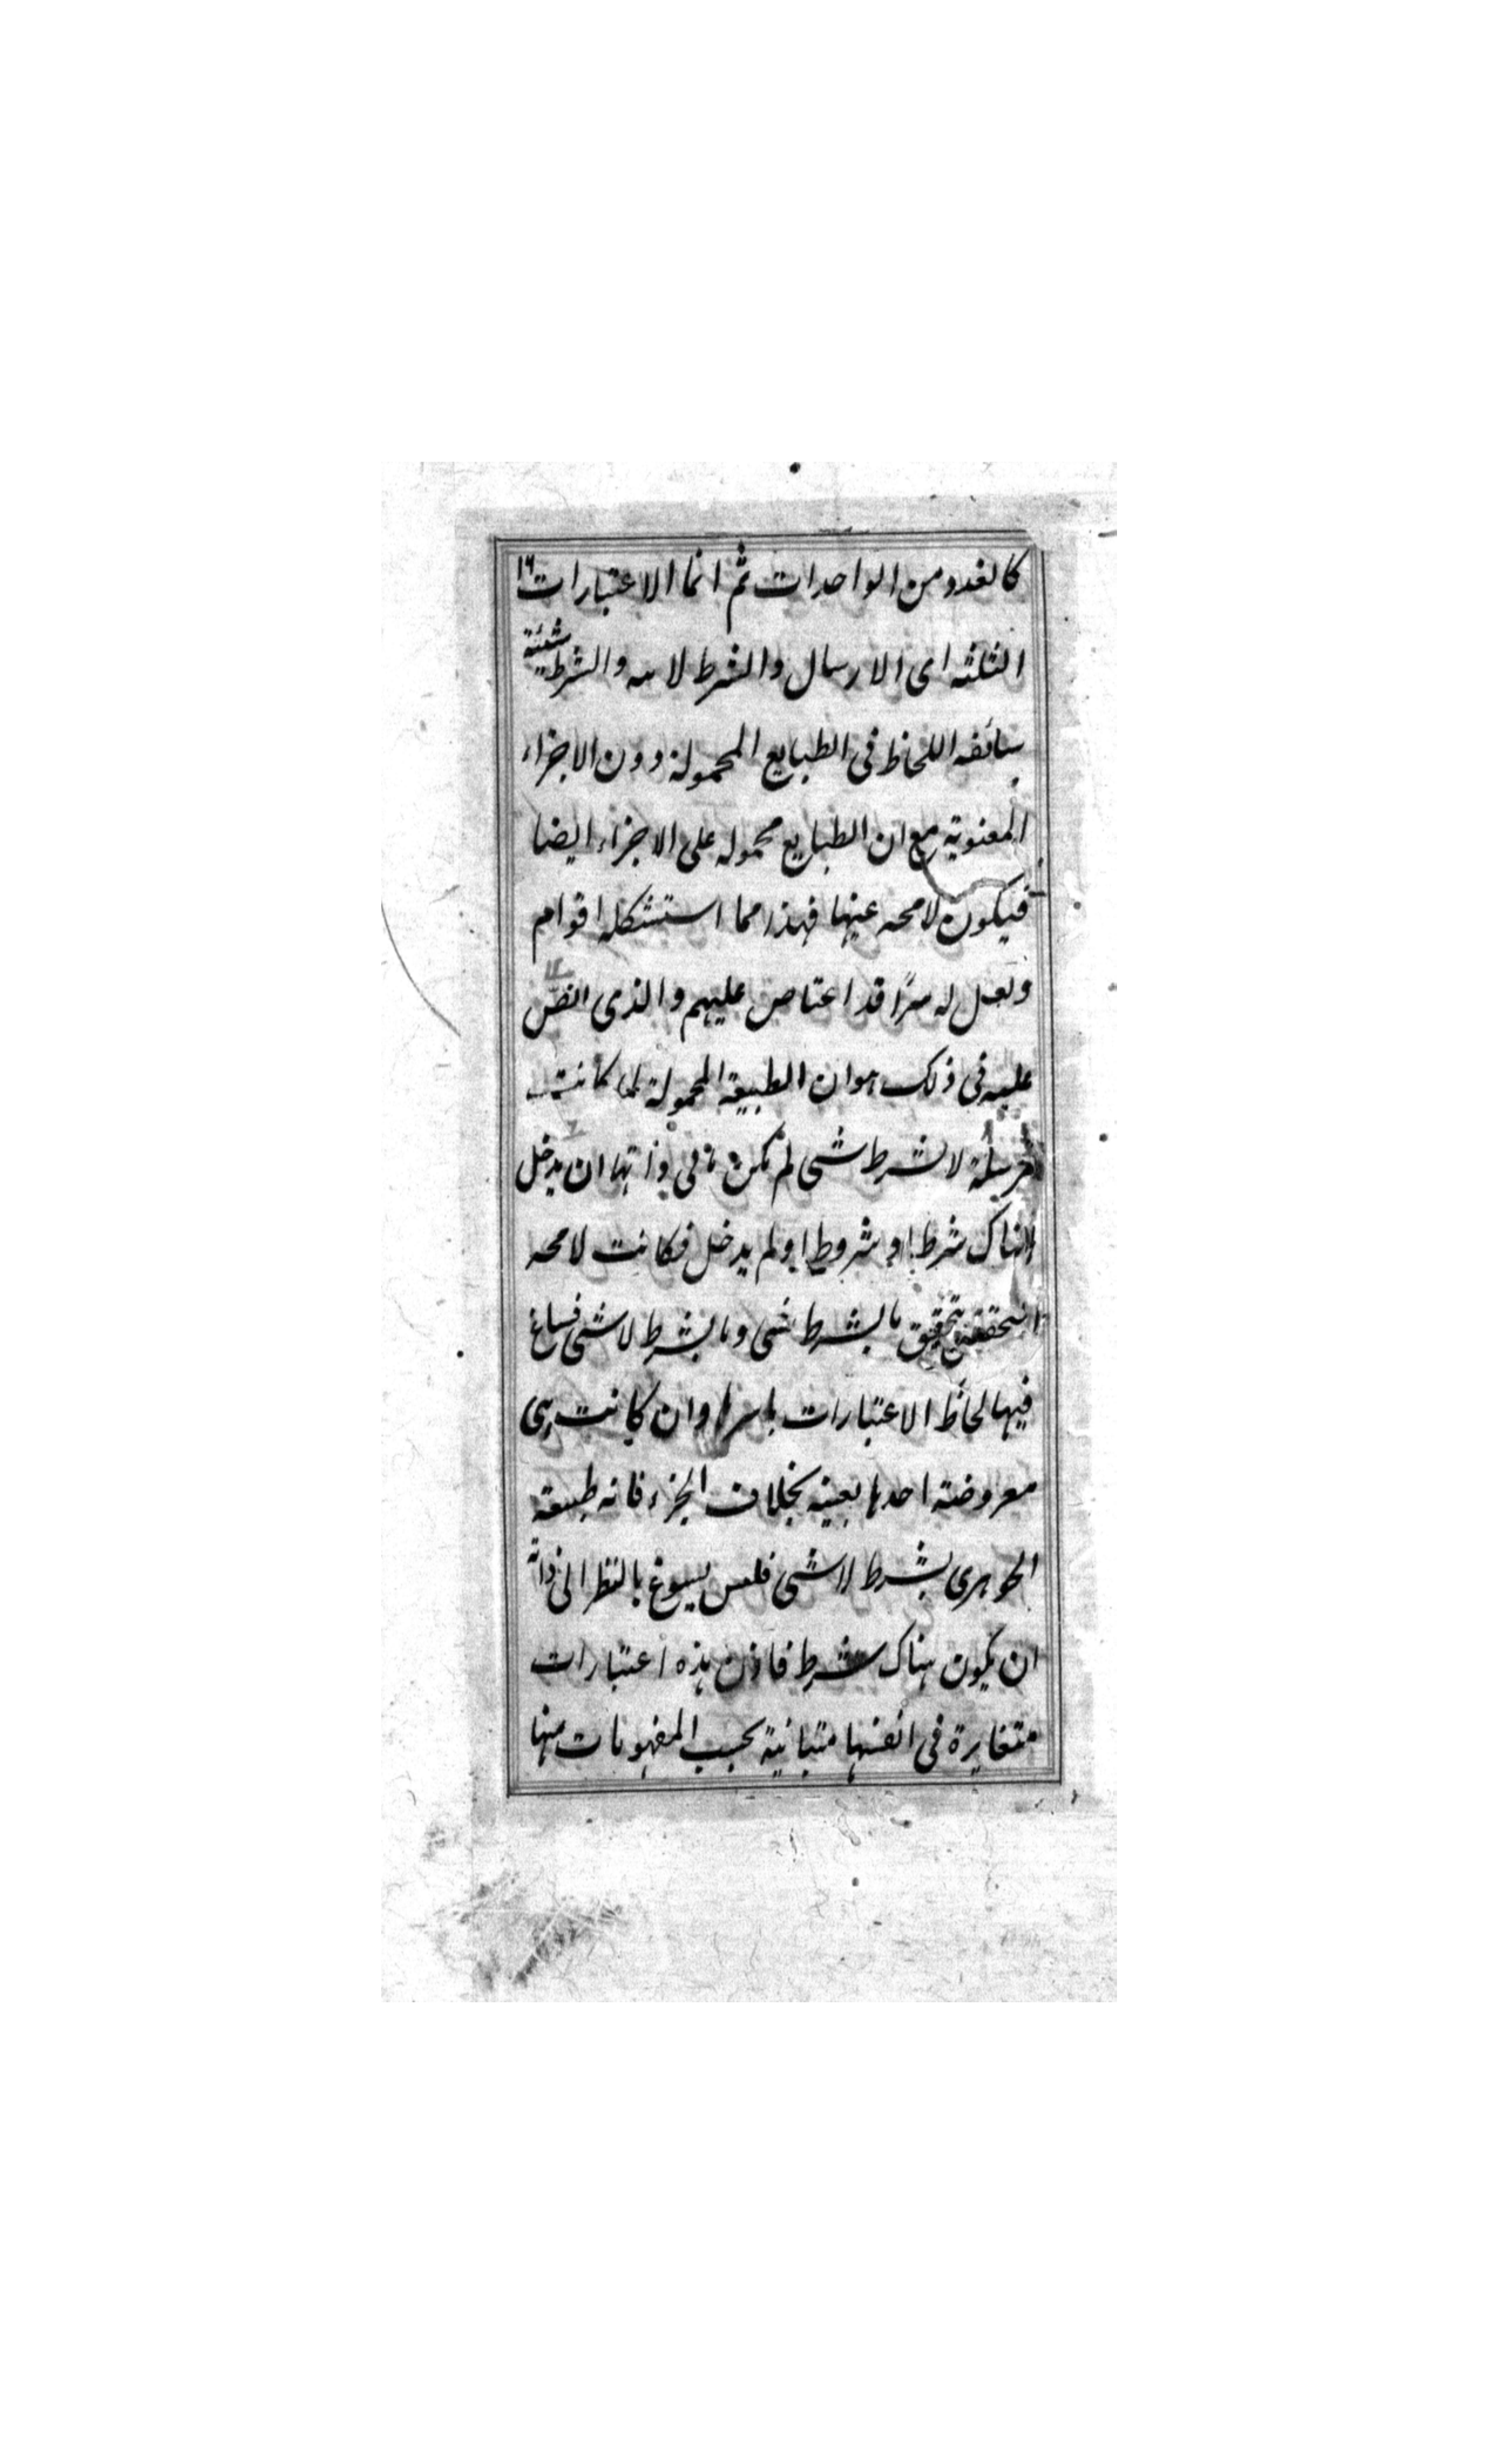 كالعدد من الواحدات ثم انما الاعتبارات ١٦
الثلثه اى الارسال والشرط لاييه والشرط شيئية
سائغه اللحاظ فى الطبايع المحمولة دون الاجزاء
المعنوية مع ان الطبايع محموله على الاجزاء ايضا
فيكون لا محه عينها فهذا مما استشكله اقوام
ولعل له سرًا قد اعتاص عليهم والذى النص
عليه فى ذلك هو ان الطبيعة المحمولة لما كانت
مرسلة لا بشرط شى لم تكن تابى ذاتها ان يدخل
هناك شرط او شروط او لم يدخل فكانت لا محه
بتحقق ما بشرط شى وما بشرط لا شى فساغ
فيها لحاظ الاعتبارات باسرها وان كانت هى
معروضة احدها بعينه بخلاف الجزء فانه طبيعة
الجوهرى بشرط لا شى فليس يسوغ بالنظر الى ذاته
ان يكون هناك شرط فاذن هذه اعتبارات
متغايرة فى انفسها متباينة بحسب المفهومات منها